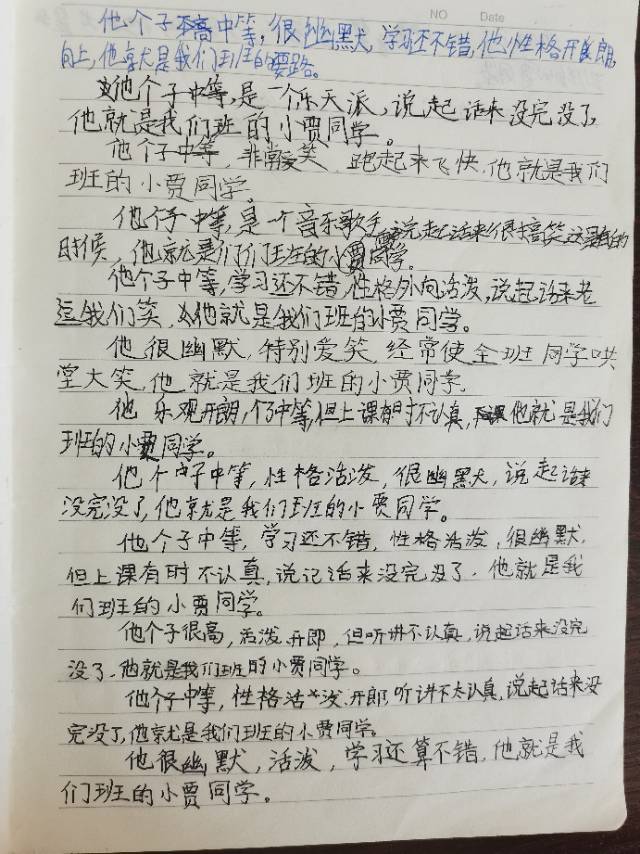 NO Date
他个子中等,很幽默,学习还不错,他性格开朗
向上,他就是我们班的要路。
他个子中等,是一个乐天派,说起话来没完没了,
他就是我们班的小贾同学。
他个子中等,非常爱笑,跑起来飞快,他就是我们
班的小贾同学。
他个子中等,是一个音乐歌手,说起话来很搞笑,这是我的
时候,他就是们们班的小贾同学。
他个子中等,学习还不错,性格外向活泼,说起话来老
逗我们笑,他就是我们班的小贾同学。
他很幽默,特别爱笑,经常使全班同学哄
堂大笑,他就是我们班的小贾同学。
他乐观开朗,个子中等,但上课有时不认真,他就是我们
班的小贾同学。
他个子中等,性格活泼,很幽默,说起话来
没完没了,他就是我们班的小贾同学。
他个子中等,学习还不错,性格活泼,很幽默,
但上课有时不认真,说记话来没完没了,他就是我
们班的小贾同学。
他个子很高,活泼开即,但听讲不认真,说起话来没完
没了,他就是我们班的小贾同学。
他个子中等,性格活泼开郎,听讲不太认真,说起话来没
完没了,他就是我们班的小贾同学。
他很幽默,活泼,学习还算不错,他就是我
们班的小贾同学。